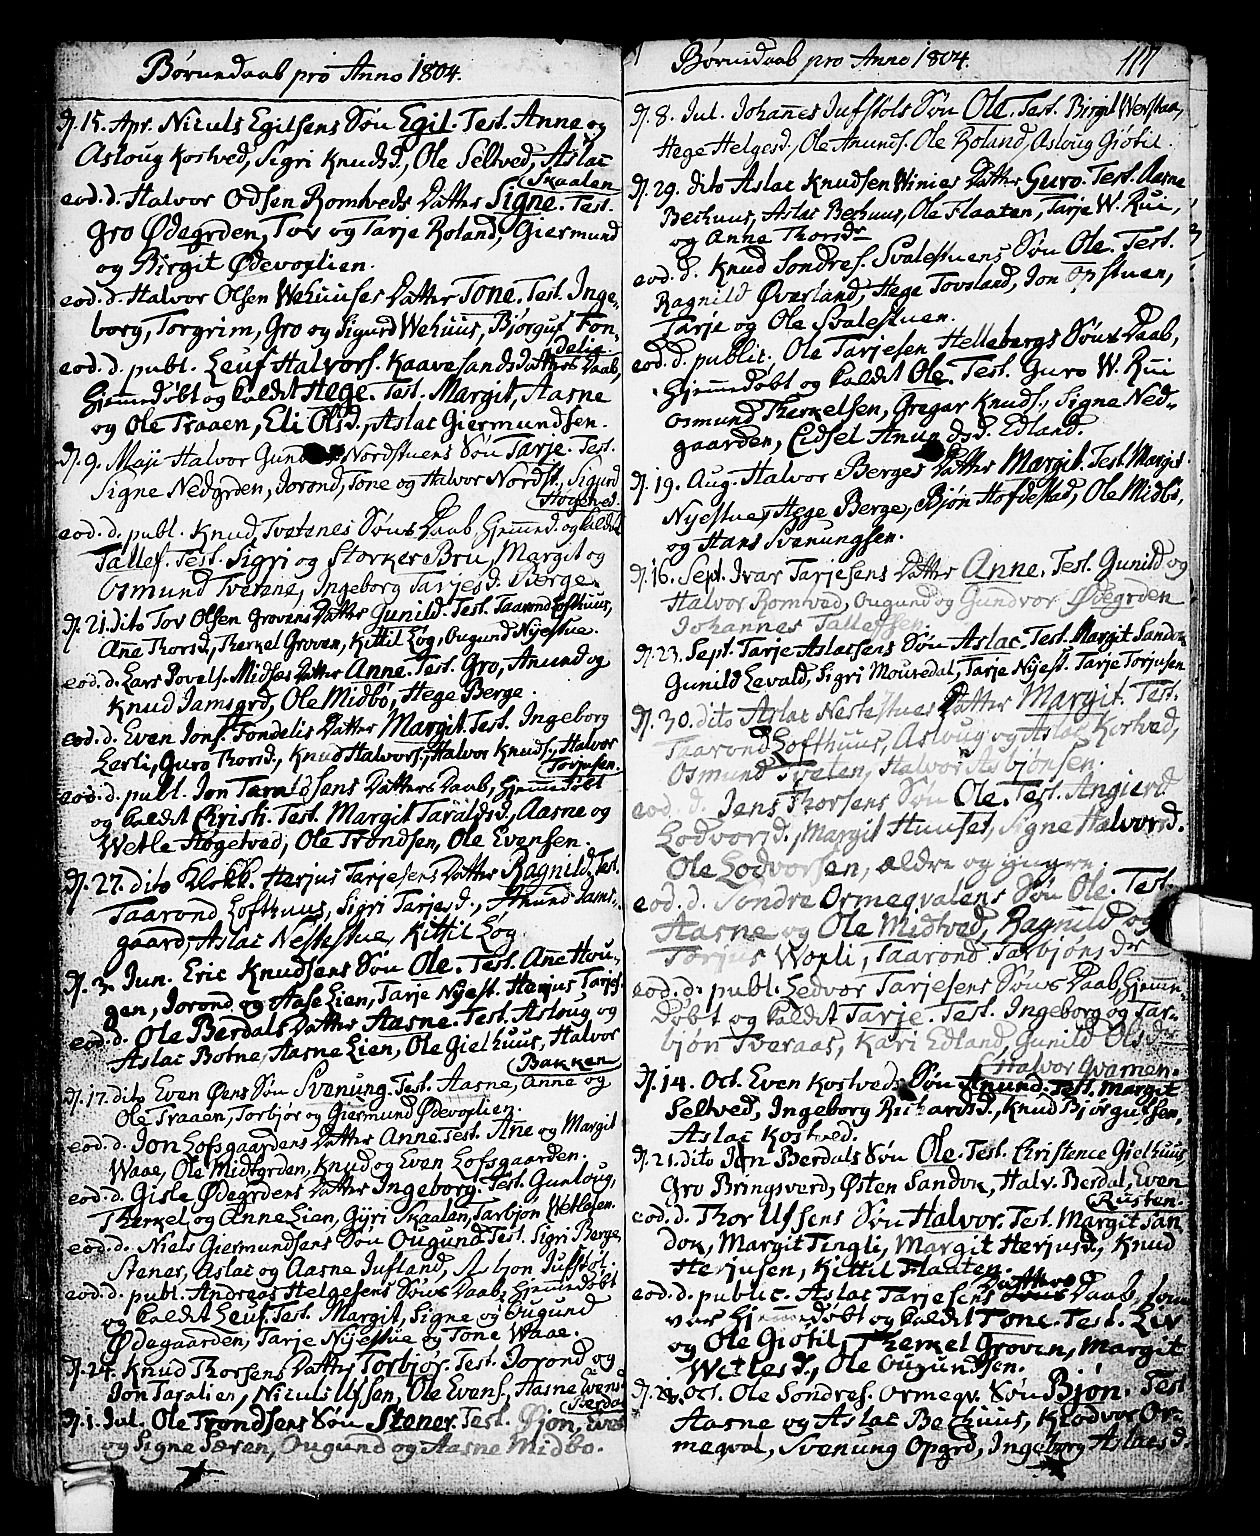 Børnedaab pro Anno 1804.
D. 15. Apr. Niculs Egilsens Søn Egil. Test. Anne og
Asloug Kostved, Sigri Knudsd., Ole Seltved, Aslac
Skaalen
eod. d. Halvor Odsen Romtveds Datter Signe. Test.
Gro Ødegrden, Tov og Tarje Roland, Giermund
og Birgit Ødevoglien.
eod. d. Halvor Olsen Wehuuses Datter Tone. Test. Inge-
borg, Torgrim, Gro og Sigurd Wehuus, Bjørguf Fon-
delie
eod. d. publ. Leuf Halvors. Kaavesands Datters Daab,
Hjemmedøbt og kaldet Hege. Test. Margit, Aasne
og Ole Traaen, Eli Olsd., Aslac Giermundsen.
D. 9. Maji Halvor Nordstuens Søn Tarje. Test.
Signe Nedgrden, Jorond, Tone og Halvor Nordst., Sigurd
Høgetved.
eod. d. publ. Knud Tvetenes Søns Daab, Hjemmed. og kaldet
Tallef. Test. Sigri og Storker Bru, Margit og
Osmund Tvetene, Ingeborg Tarjesd. Berge.
D. 21. Dito Tov Olsen Grovens Datter Gunild. Test. Taarond Lofthuus,
Ane Thorsd., Therkel Groven, Kittil Løg, Ougund Nyestue.
eod. d. Lars Povels. Midbøs Datter Anne. Test. Gro, Anund og
Knud Jamsgrd, Ole Midbø, Hege Berge.
eod. d. Even Jons. Fondelis Datter Margit. Test. Ingeborg
Lerli, Guro Thorsd., Knud Halvors., Halvor Knuds., Halvor
Torjusen.
eod. d. publ. Jon Taraldsens Datters Daab, Hjemmedøbt
og kaldet Christi. Test. Margit Taraldsd., Aasne og
Wetle Høgetved, Ole Trondsen, Ole Evensen.
D. 27. dito Klokk. Herjus Tarjesens Datter Ragnild. Test.
Taarond Lofthuus, Sigri Tarjesd., Anund Jams-
gaard, Aslac Nestestue, Kittil Løg.
D. 3. Jun. Eric Knudsens Søn Ole. Test. Ane Hou-
gen, Jorond og Aase Lien, Tarje Nyest. Herjus Tarjes.
eod. d. Ole Berdals Datter Aasne. Test. Asloug og
Aslac Botne, Aasne Lien, Ole Gielhuus, Halvor
Bakken
D. 17. dito Even Øens Søn Svenung. Test. Aasne, Anne og
Ole Traaen, Torbjør og Giermund Ødevoglien.
eod. d. Jon Lofsgaardens Datter Anne. Test. Ane og Margit
Waae, Ole Midtgrden, Knud og Even Lofsgaarden.
eod. d. Gisle Ødegrdens Datter Ingeborg. Test. Gunloug,
Therkel og Anne Lien, Gyri Skaalen, Tarbjøn Wetlesen.
eod. d. Niels Giermundsens Søn Ougund. Test. Sigri Berge,
Stener, Aslac og Aasne Jufland, Asbjon Jufstol.
eod. d. publ. Andreas Helgesens Søns Daab, Hjemmedøbt
og kaldet Leuf. Test. Margit, Signe og Ougund
Ødegaarden, Tarje Nyestue og Tone Waae.
D. 24. Knud Thorsens Datter Torbjør. Test. Jorond og
Jon Taralien, Niculs Ulfsen, Ole Evens., Aasne Evensd.
Berdal
D. 1. Jul. Ole Trondsens Søn Stener. Test. Øjon,
og Signe Særen, Ougund og Aasne Midbø.
Børnedaab pro Anno 1804. 117
D. 8. Jul. Johannes Jufstols Søn Ole. Test. Birgit Werstaa,
Hege Helgesd., Ole Anunds. Ole Roland, Asloug Giøtil.
D. 29. dito Aslac Knudsen Winies Datter Guro. Test. Aasne
Bechuus, Aslac Bechuus, Ole Flaaten, Tarje W. Rui,
og Anne Thorsdr
eod. d. Knud Sondres. Svalestuens Søn Ole. Test.
Ragnild Øverland, Hege Tovslaed, Jon Opstuen,
Tarje og Ole Svalestuen.
eod. d. public. Ole Tarjesen Hellebergs Søns Daab,
Hjemmedøbt og kaldet Ole. Test. Guro W. Rui
Osmund Therkelsen, Gregar Knuds., Signe Ned-
gaarden, Eidsel Anundsd. Edland.
D. 19. Aug. Halvor Berges Datter Margit. Test. Margit
Nyestue, Hege Berge, Bjøn Hofdestad, Ole Midbø,
og Hans Svenungsen.
D. 16. Sept. Ivar Tarjesens Datter Anne. Test. Gunild og
Halvor Romtved, Ougund og Gundvor Ødegrden
Johannes Tallefsen.
D. 23. Sept. Tarje Aslacsens Søn Aslac. Test. Margit Sandok
Gunild Levald, Sigri Mouredal, Tarje Nyest. Tarje Torjusen
D. 30. dito Aslac Nestestues Datter Margit. Test.
Taarond Lofthuus, Asloug og Aslac Kostved,
Osmund Tveten, Halvor Asbjønsen.
eod. d. Jens Thorsens Søn Ole. Test. Angierd
Lodvorsd., Margit Huuset, Signe Halvorsd.
Ole Lodvorsen, ældre og yngre.
eod. d. Sondre Ormeqvalens Søn Ole. Test.
Aasne og Ole Midtved, Ragnild og
Torjus Woxli, Taarond Tarbjønsdr
eod. d. publ. Ledvor Tarjesens Søns Daab, Hjemme-
døbt og kaldet Tarje. Test. Ingeborg og Tar-
bjøn Tveraas, Kari Edland, Gunild Olsdr
Halvor Qvamen.
D. 14. Oct. Even Kostveds Søn Anund. Test. Margit
Seltved, Ingeborg Richardsd., Knud Bjørgufsen,
Aslac Kostved.
D. 21. dito Jon Berdals Søn Ole. Test. Christence Gielhuus,
Gro Bringsverd, Østen Sandok, Halv. Berdal, Even
Rusten.
eod. d. Thor Ulfsens Søn Halvor. Test. Margit San
dok, Margit Tingli, Margit Herjusd., Knud
Herjusen, Kittil Flaaten.
Datters
eod. d. public. Aslac Tarjesens Søns Daab, som
var Hjemmedøbt og kaldet Tone. Test. Liv
og Ole Giøtil, Therkel Groven, Margit
Wetlesd., Ole Ougundsen.
Oct. Ole Sondres. Ormeqv. Søn Bjøn. Test
Aasne og Aslac Bechuus, Klodvor Or-
meqval, Svenung Opgrd, Ingeborg Aslacsd.